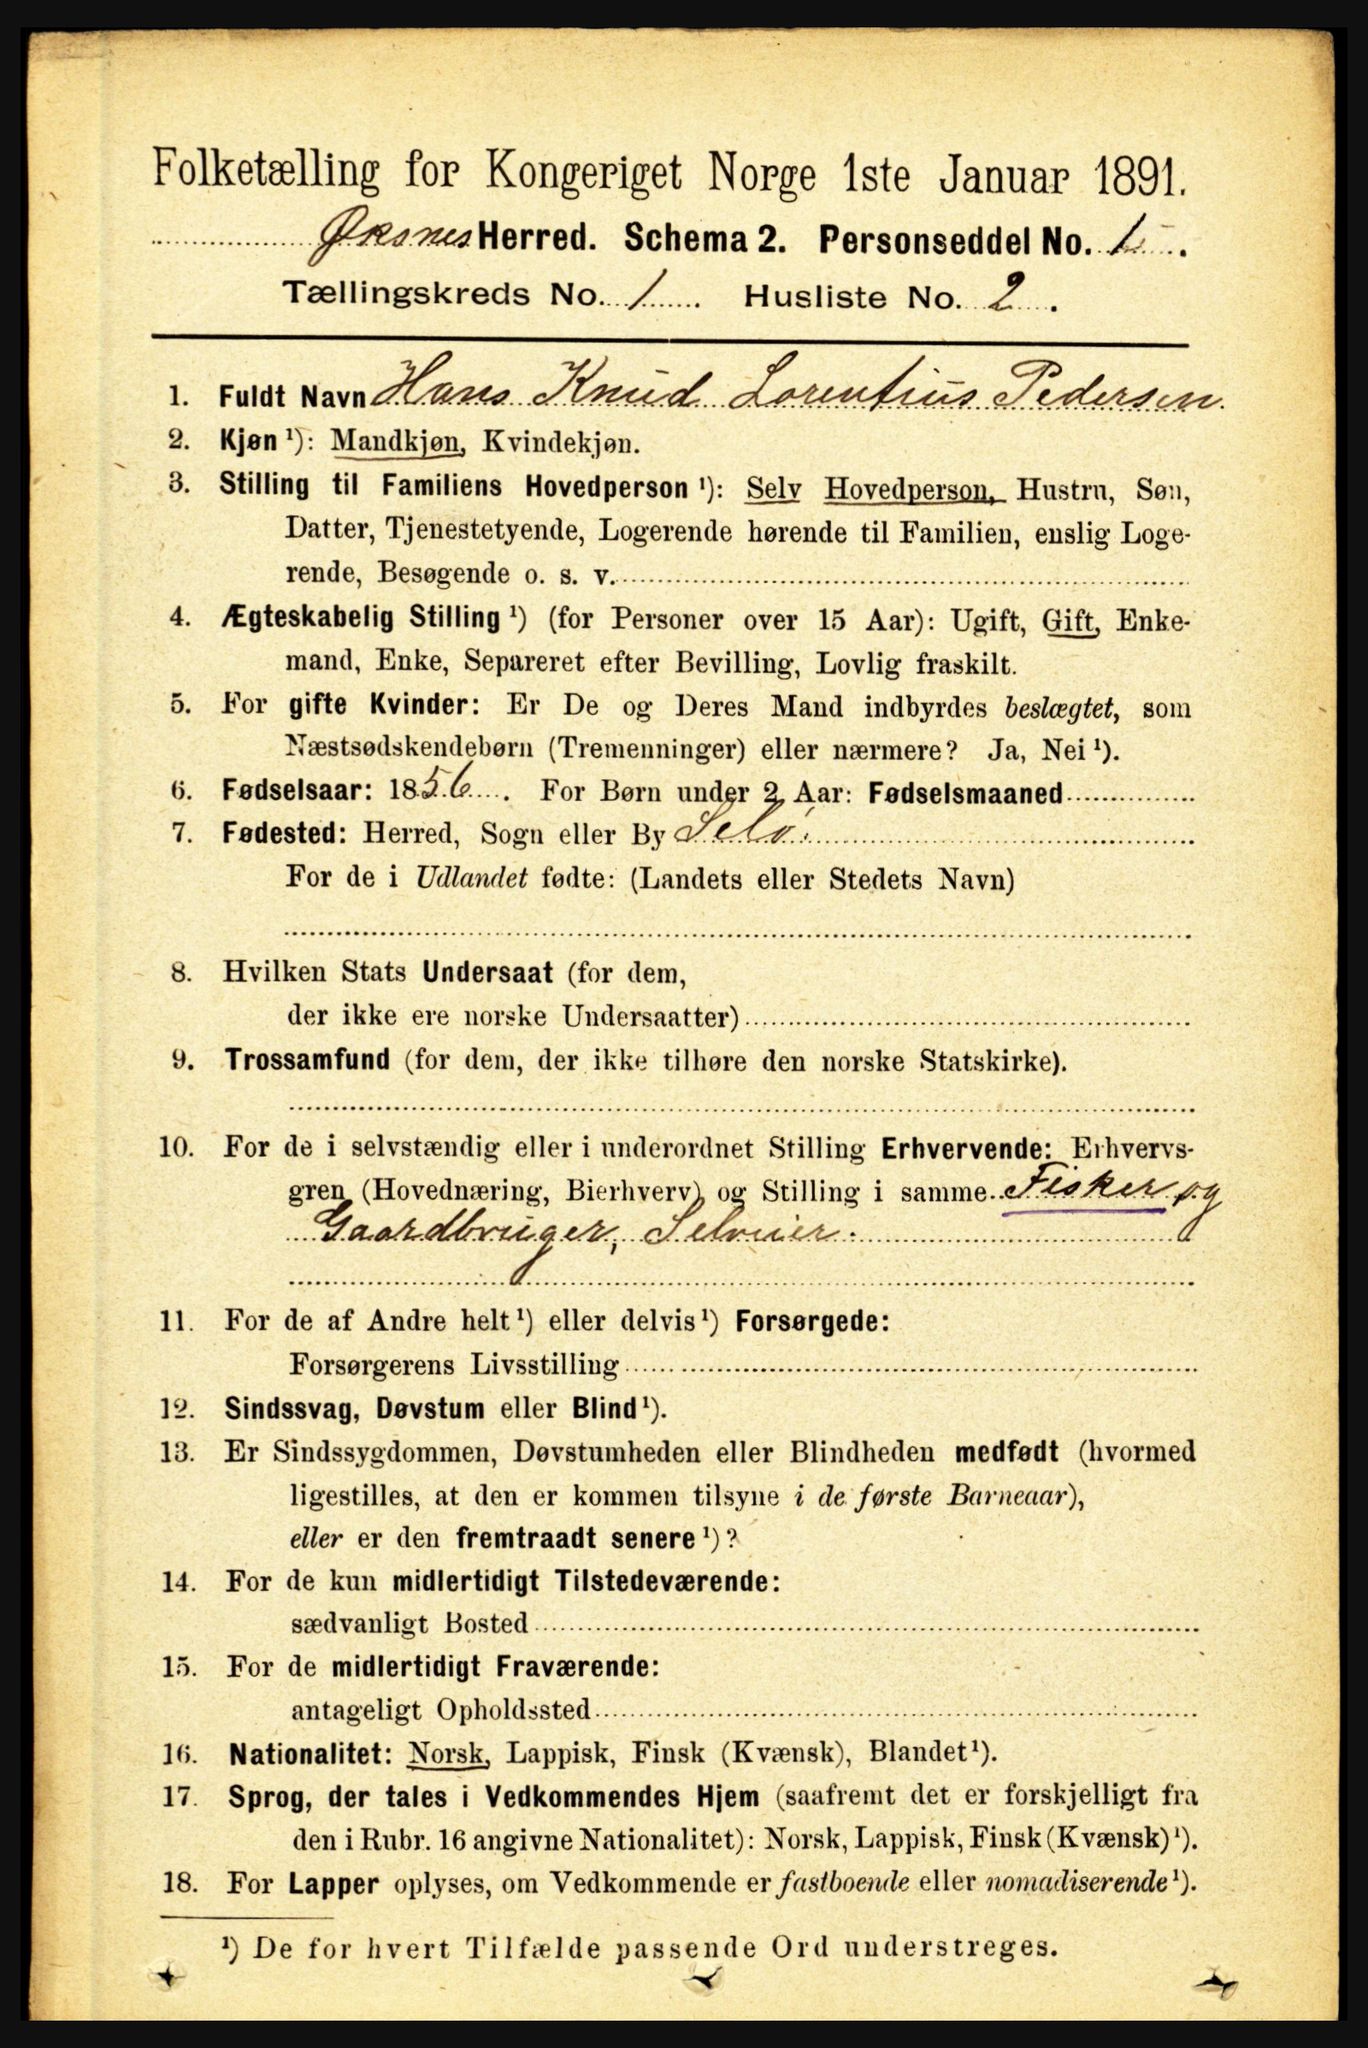 Folketælling for Kongeriget Norge 1ste Januar 1891.
Øksnes Herred. Schema 2. Personseddel No. 1.
Tællingskreds No. 1 Husliste No. 2.
1. Fuldt Navn Hans Knud Lorentius Pedersen
2. Kjøn ¹): Mandkjøn, Kvindekjøn.
3. Stilling til Familiens Hovedperson ¹): Selv Hovedperson, Hustru, Søn,
Datter, Tjenestetyende, Logerende hørende til Familien, enslig Loge-
rende, Besøgende o. s. v.
4. Ægteskabelig Stilling ¹) (for Personer over 15 Aar): Ugift, Gift, Enke-
mand, Enke, Separeret efter Bevilling, Lovlig fraskilt.
5. For gifte Kvinder: Er De og Deres Mand indbyrdes beslægtet, som
Næstsødskendebørn (Tremenninger) eller nærmere? Ja, Nei ¹).
6. Fødselsaar: 1856. For Børn under 2 Aar: Fødselsmaaned
7. Fødested: Herred, Sogn eller By Selø.
For de i Udlandet fødte: (Landets eller Stedets Navn)
8. Hvilken Stats Undersaat (for dem,
der ikke ere norske Undersaatter)
9. Trossamfund (for dem, der ikke tilhøre den norske Statskirke).
10. For de i selvstændig eller i underordnet Stilling Erhvervende: Erhvervs-
gren (Hovednæring, Bierhverv) og Stilling i samme Fisker og
Gaardbruger, Selveier.
11. For de af Andre helt ¹) eller delvis ¹) Forsørgede:
Forsørgerens Livsstilling
12. Sindssvag, Døvstum eller Blind ¹).
13. Er Sindssygdommen, Døvstumheden eller Blindheden medfødt (hvormed
ligestilles, at den er kommen tilsyne i de første Barneaar),
eller er den fremtraadt senere ¹)?
14. For de kun midlertidigt Tilstedeværende:
sædvanligt Bosted
15. For de midlertidigt Fraværende:
antageligt Opholdssted
16. Nationalitet: Norsk, Lappisk, Finsk (Kvænsk), Blandet ¹).
17. Sprog, der tales i Vedkommendes Hjem (saafremt det er forskjelligt fra
den i Rubr. 16 angivne Nationalitet): Norsk, Lappisk, Finsk (Kvænsk) ¹).
18. For Lapper oplyses, om Vedkommende er fastboende eller nomadiserende ¹).
¹) De for hvert Tilfælde passende Ord understreges.